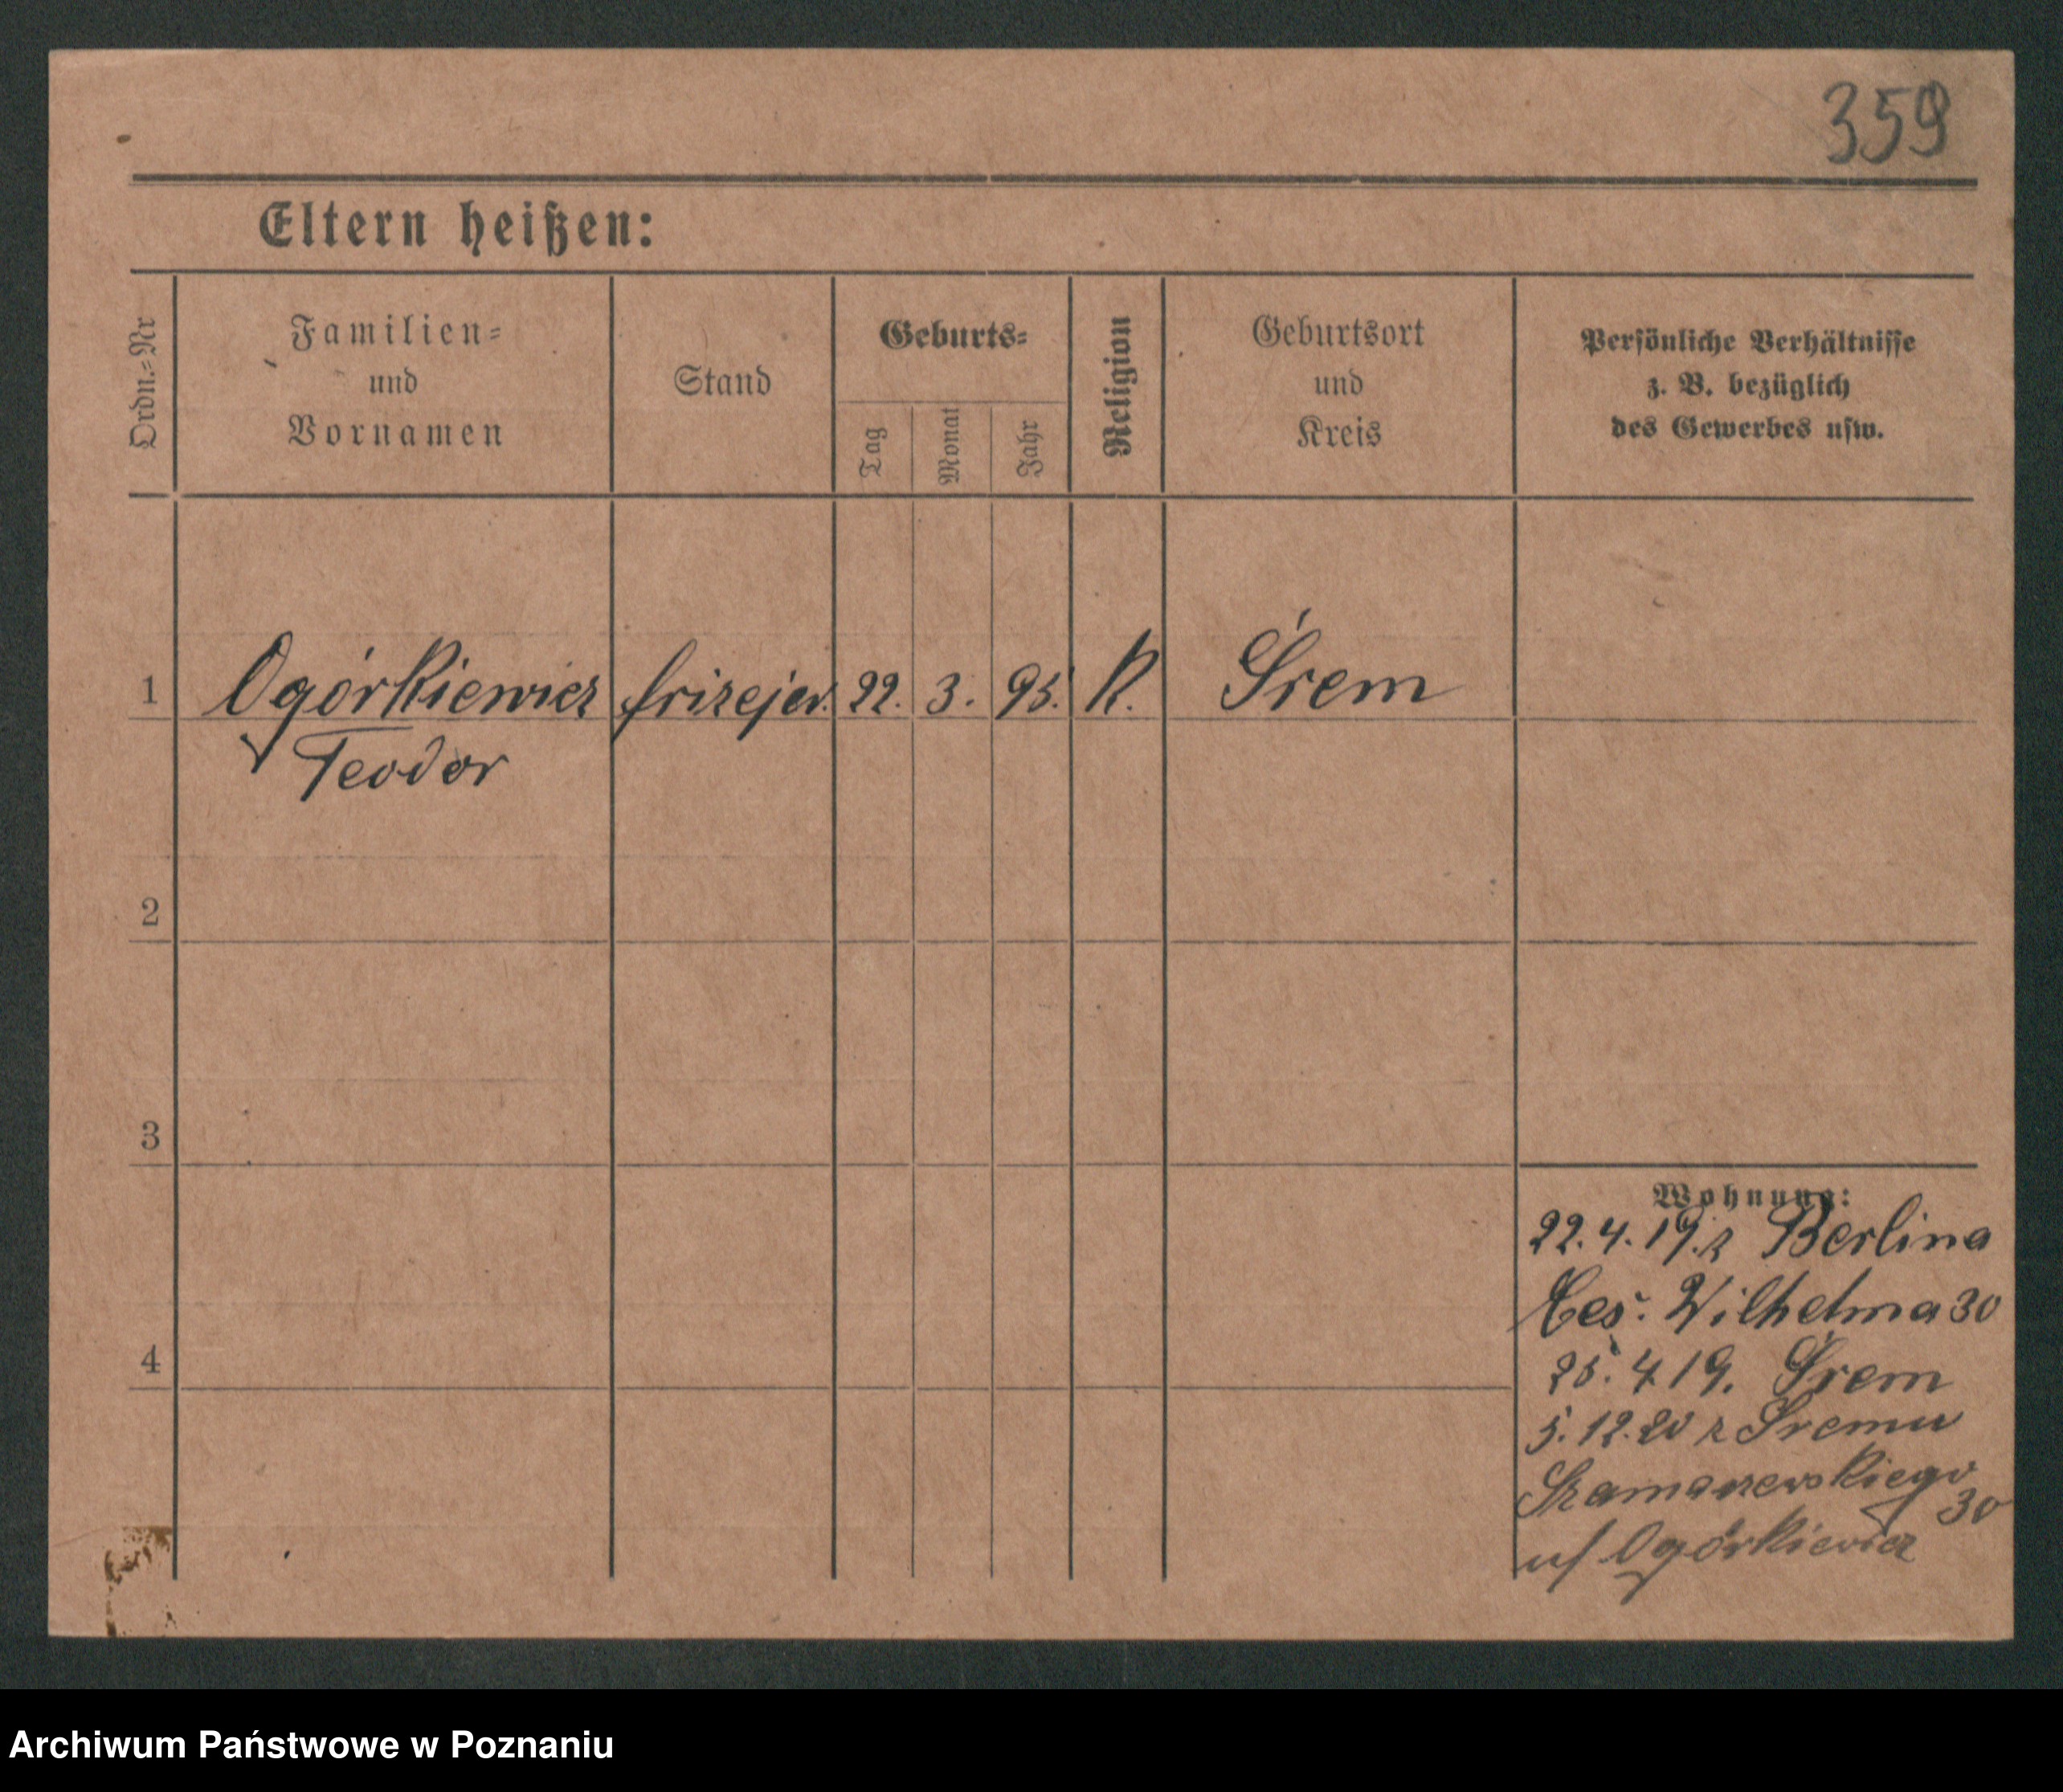 359
Eltern heißen:
Ordn.=Nr
Familien=
und
Vornamen
Stand
Geburts=
Tag
Monat
Jahr
Religion
Geburtsort
und
Kreis
Persönliche Verhältnisse
z. B. bezüglich
des Gewerbes usw.
1 Ogórkiewicz frizejer. 22. 3. 95. K. Śrem
Teodor
2
3
4
Wohnung:
22.4.19. z Berlina
Ces. Wilhelma 30
25. 4 19. Śrem
5.12.20 z Śremu
Szamarzewskiego
30
u/ Ogórkiewicz
Archiwum Państwowe w Poznaniu